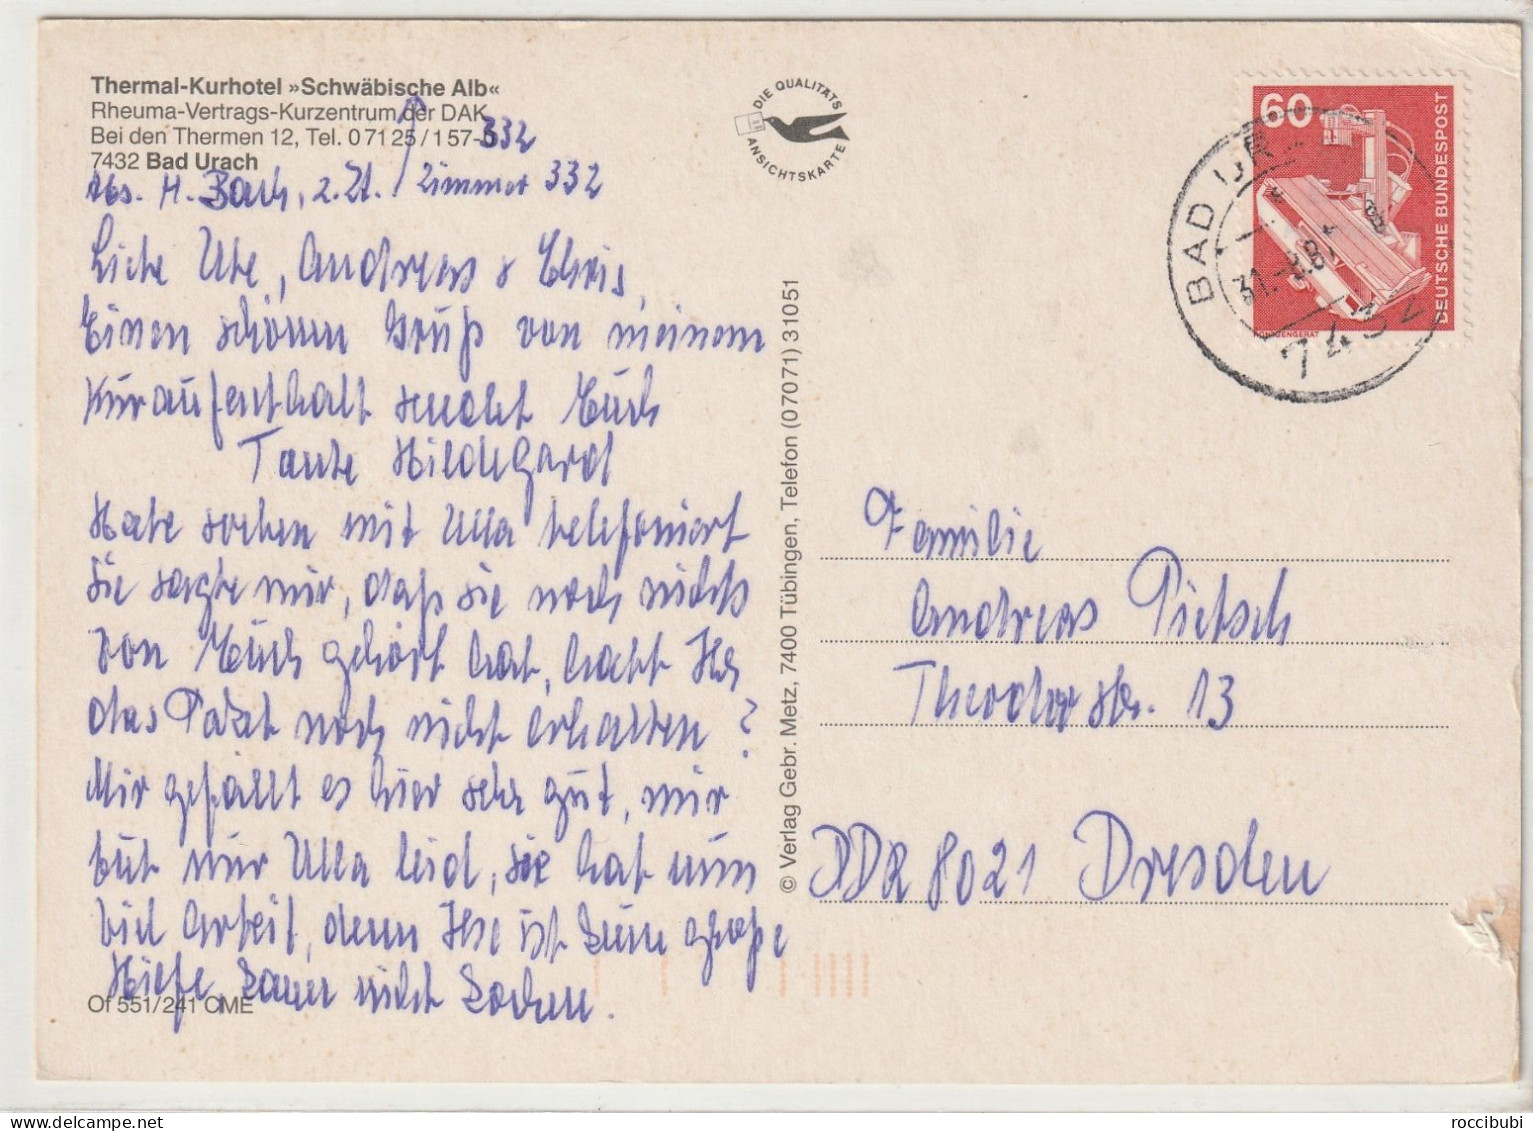 Thermal-Kurhotel »Schwäbische Alb«
Rheuma-Vertrags-Kurzentrum der DAK
Bei den Thermen 12, Tel. 07125/157-332
7432 Bad Urach
Abs. H. Bach, z. Zt. Zimmer 332
Liebe Ute, Andreas & Chris,
Einen schönen Gruß von meinem
Kuraufenthalt sendet Euch
Tante Hildegard
Habe soeben mit Ulla telefoniert
Sie sagte mir, daß sie noch nichts
von Euch gehört hat, habt Ihr
das Paket noch nicht erhalten?
Mir gefällt es hier sehr gut, mir
tut nur Ulla leid, sie hat nun
viel Arbeit, denn Ilse ist keine große
Hilfe, kann nicht kochen.
Of 551/241 CME
DIE QUALITÄTS
ANSICHTSKARTE
© Verlag Gebr. Metz, 7400 Tübingen, Telefon (07071) 31051
60
DEUTSCHE BUNDESPOST
RÖNTGENGERÄT
BAD URACH
7432
Familie
Andreas Pietsch
Theodorstr. 13
DDR 8021 Dresden
roccibubi